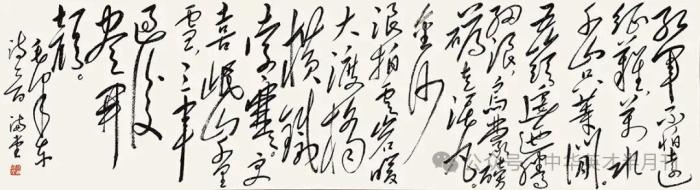 红军不怕远
征难万水
千山只等闲
五岭逶迤腾
细浪乌蒙磅
礴走泥丸
金沙
浪拍云岩暖
大渡桥
横铁
索寒更
喜岷山千里
雪三军
过后
尽开
颜。
毛泽东
诗一首
公众号·中华英才半月刊